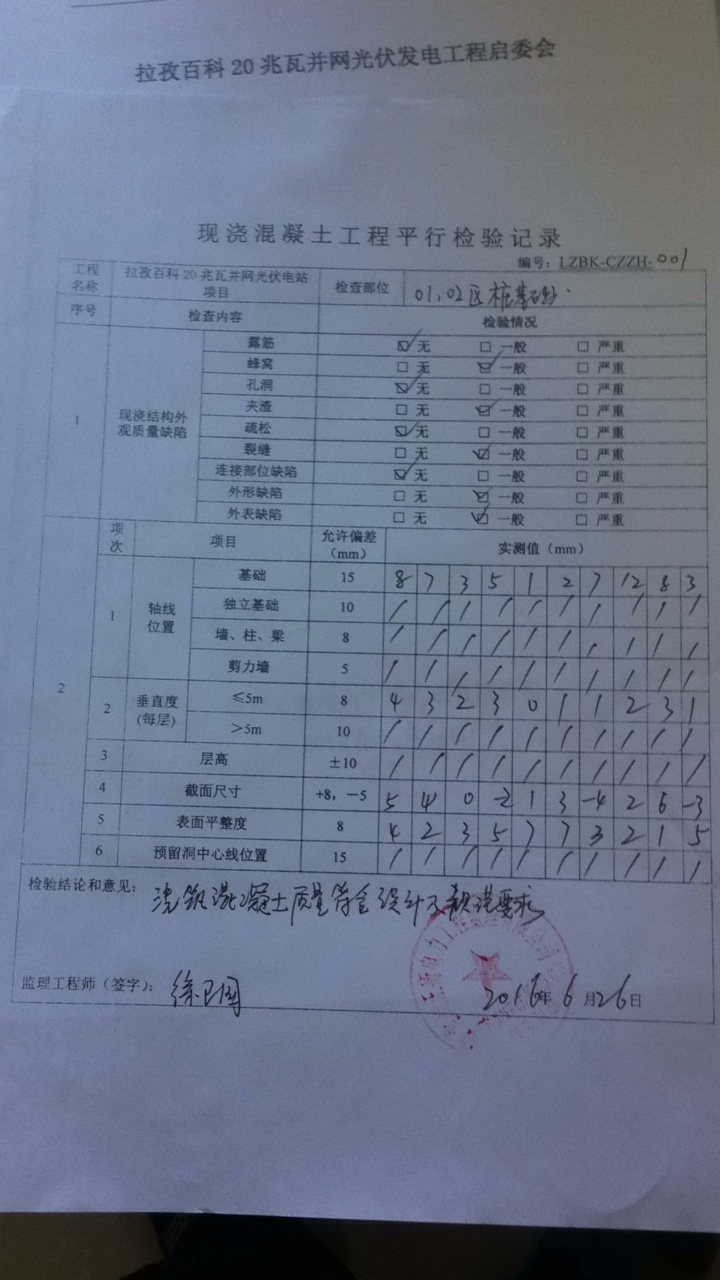 拉孜百科20兆瓦并网光伏发电工程启委会
现浇混凝土工程平行检验记录
编号：LZBK-CZZH-001
工程名称 拉孜百科20兆瓦并网光伏电站项目 检查部位 01,02区桩基础
序号 检查内容 检验情况
1 现浇结构外观质量缺陷
露筋 ☑无 □一般 □严重
蜂窝 □无 ☑一般 □严重
孔洞 ☑无 □一般 □严重
夹渣 □无 ☑一般 □严重
疏松 ☑无 □一般 □严重
裂缝 □无 ☑一般 □严重
连接部位缺陷 ☑无 □一般 □严重
外形缺陷 □无 ☑一般 □严重
外表缺陷 □无 ☑一般 □严重
2 项次 项目 允许偏差（mm） 实测值（mm）
1 轴线位置 基础 15 8 7 3 5 1 2 7 12 8 3
独立基础 10 / / / / / / / / / /
墙、柱、梁 8 / / / / / / / / / /
剪力墙 5 / / / / / / / / / /
2 垂直度(每层) ≤5m 8 4 3 2 3 0 1 1 2 3 1
>5m 10 / / / / / / / / / /
3 层高 ±10 / / / / / / / / / /
4 截面尺寸 +8，－5 5 4 0 -2 1 3 -4 2 6 -3
5 表面平整度 8 4 2 3 5 7 7 3 2 1 5
6 预留洞中心线位置 15 / / / / / / / / / /
检验结论和意见：浇筑混凝土质量符合设计及规范要求
监理工程师（签字）：徐卫国 2016年6月26日